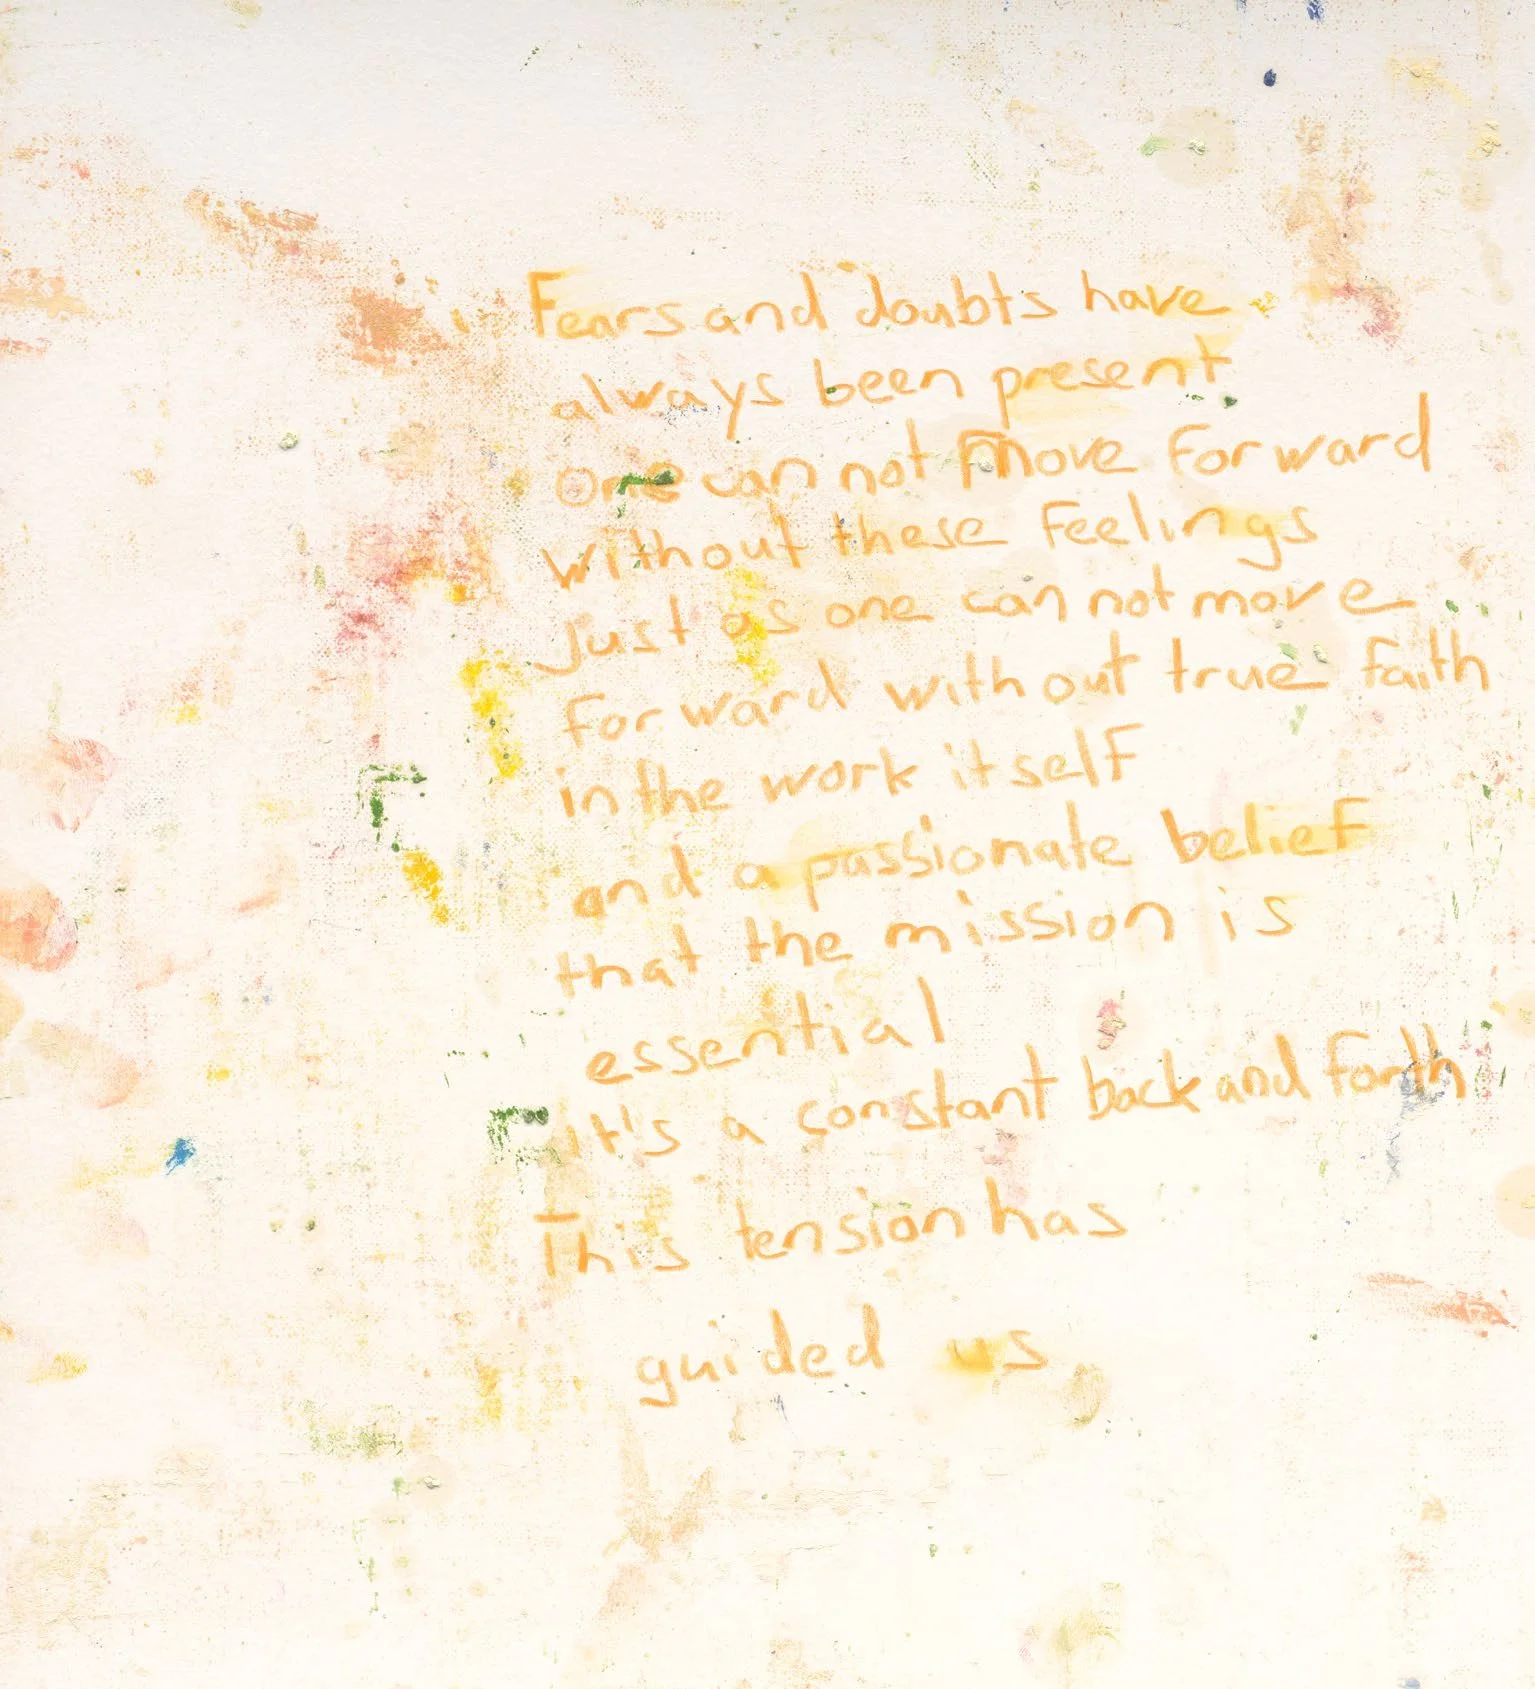 Fears and doubts have
always been present
one can not move forward
without these feelings
Just as one can not move
forward without true faith
in the work itself
and a passionate belief
that the mission is
essential
it's a constant back and forth
This tension has
guided us